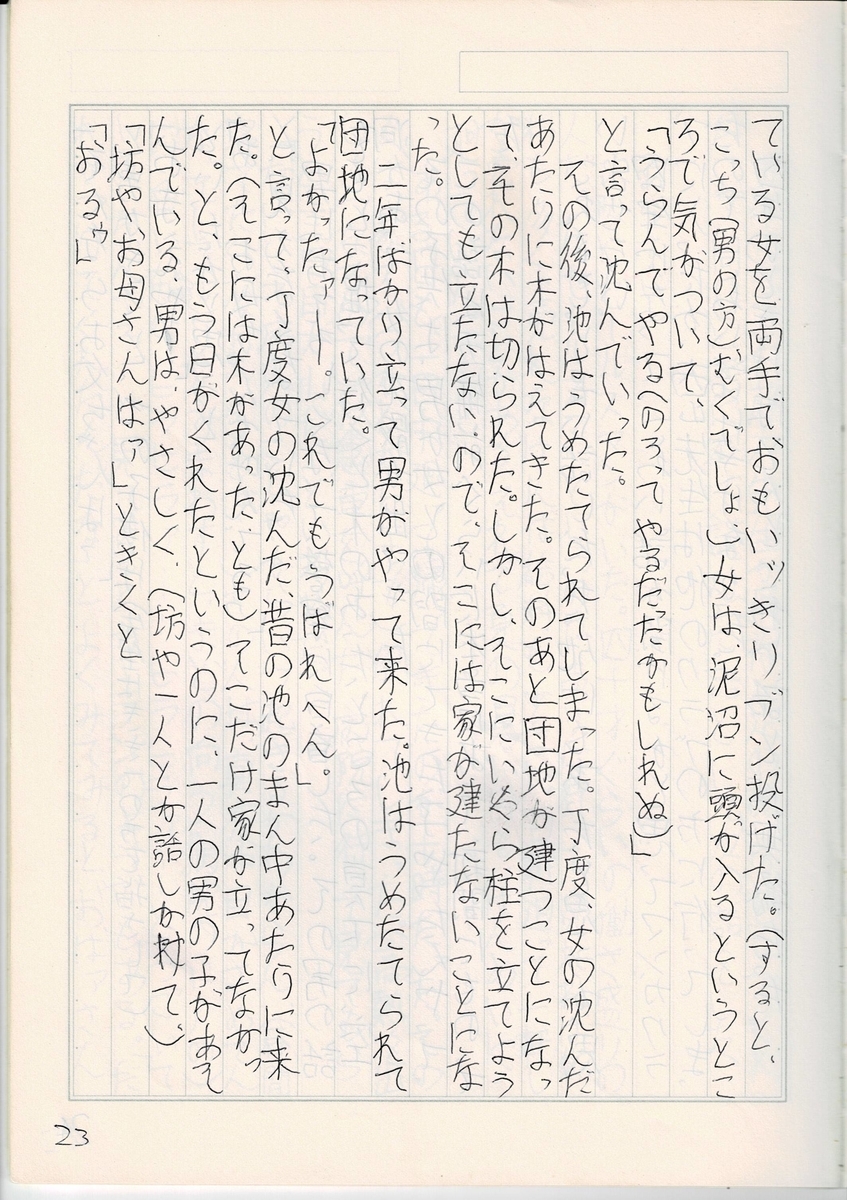 ている女を両手でおもいッきりブン投げた。(すると、
こっち(男の方)むくでしょ)女は、泥沼に頭が入るというとこ
ろで気がついて、
「うらんでやる(のろってやるだったかもしれぬ)」
と言って沈んでいった。
その後、池はうめたてられてしまった。丁度、女の沈んだ
あたりに木がはえてきた。そのあと団地が建つことになっ
て、その木は切られた。しかし、そこにいくら柱を立てよう
としても立たない。ので、そこには家が建たないことにな
った。
二年ばかり立って男がやって来た。池はうめたてられて
団地になっていた。
「よかったァー。これでもうばれへん。」
と言って、丁度女の沈んだ、昔の池のまん中あたりに来
た。(そこには木があった、とも)そこだけ家が立ってなかっ
た。と、もう日がくれたというのに、一人の男の子があそ
んでいる、男は、やさしく、(坊や一人とか話しかけて、)
「坊や、お母さんはァ」ときくと
「おるゥ」
23